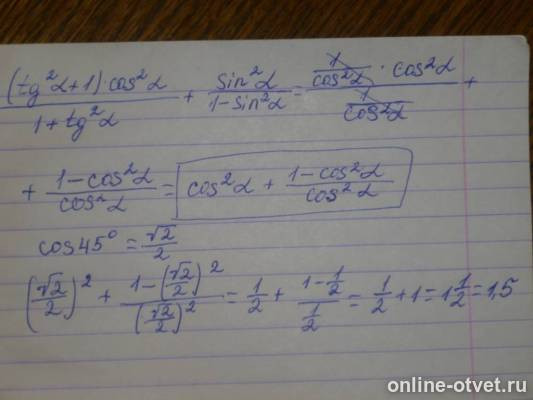 ((tg²α+1)cos²α)/(1+tg²α) + sin²α/(1-sin²α) = (1/cos²α · cos²α)/(1/cos²α) +
+ (1-cos²α)/cos²α = cos²α + (1-cos²α)/cos²α
cos45° = √2/2
(√2/2)² + (1-(√2/2)²)/(√2/2)² = 1/2 + (1-1/2)/(1/2) = 1/2 + 1 = 1 1/2 = 1,5
online-otvet.ru